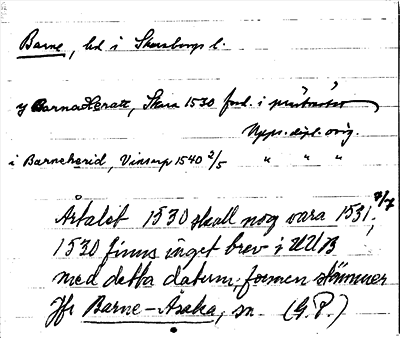 Barne, hd i Skaraborgs l.
y Barna Heratt, Skara 1530 ford. i
Upps. dipl. orig.
i Barneherid, Vinsarp 1540 2/5 " " "
Årtalet 1530 skall nog vara 1531, 7/7
1530 finns inget brev i UUB
med detta datum; formen stämmer
Jfr Barne-Åsaka, sn. (G.P.)